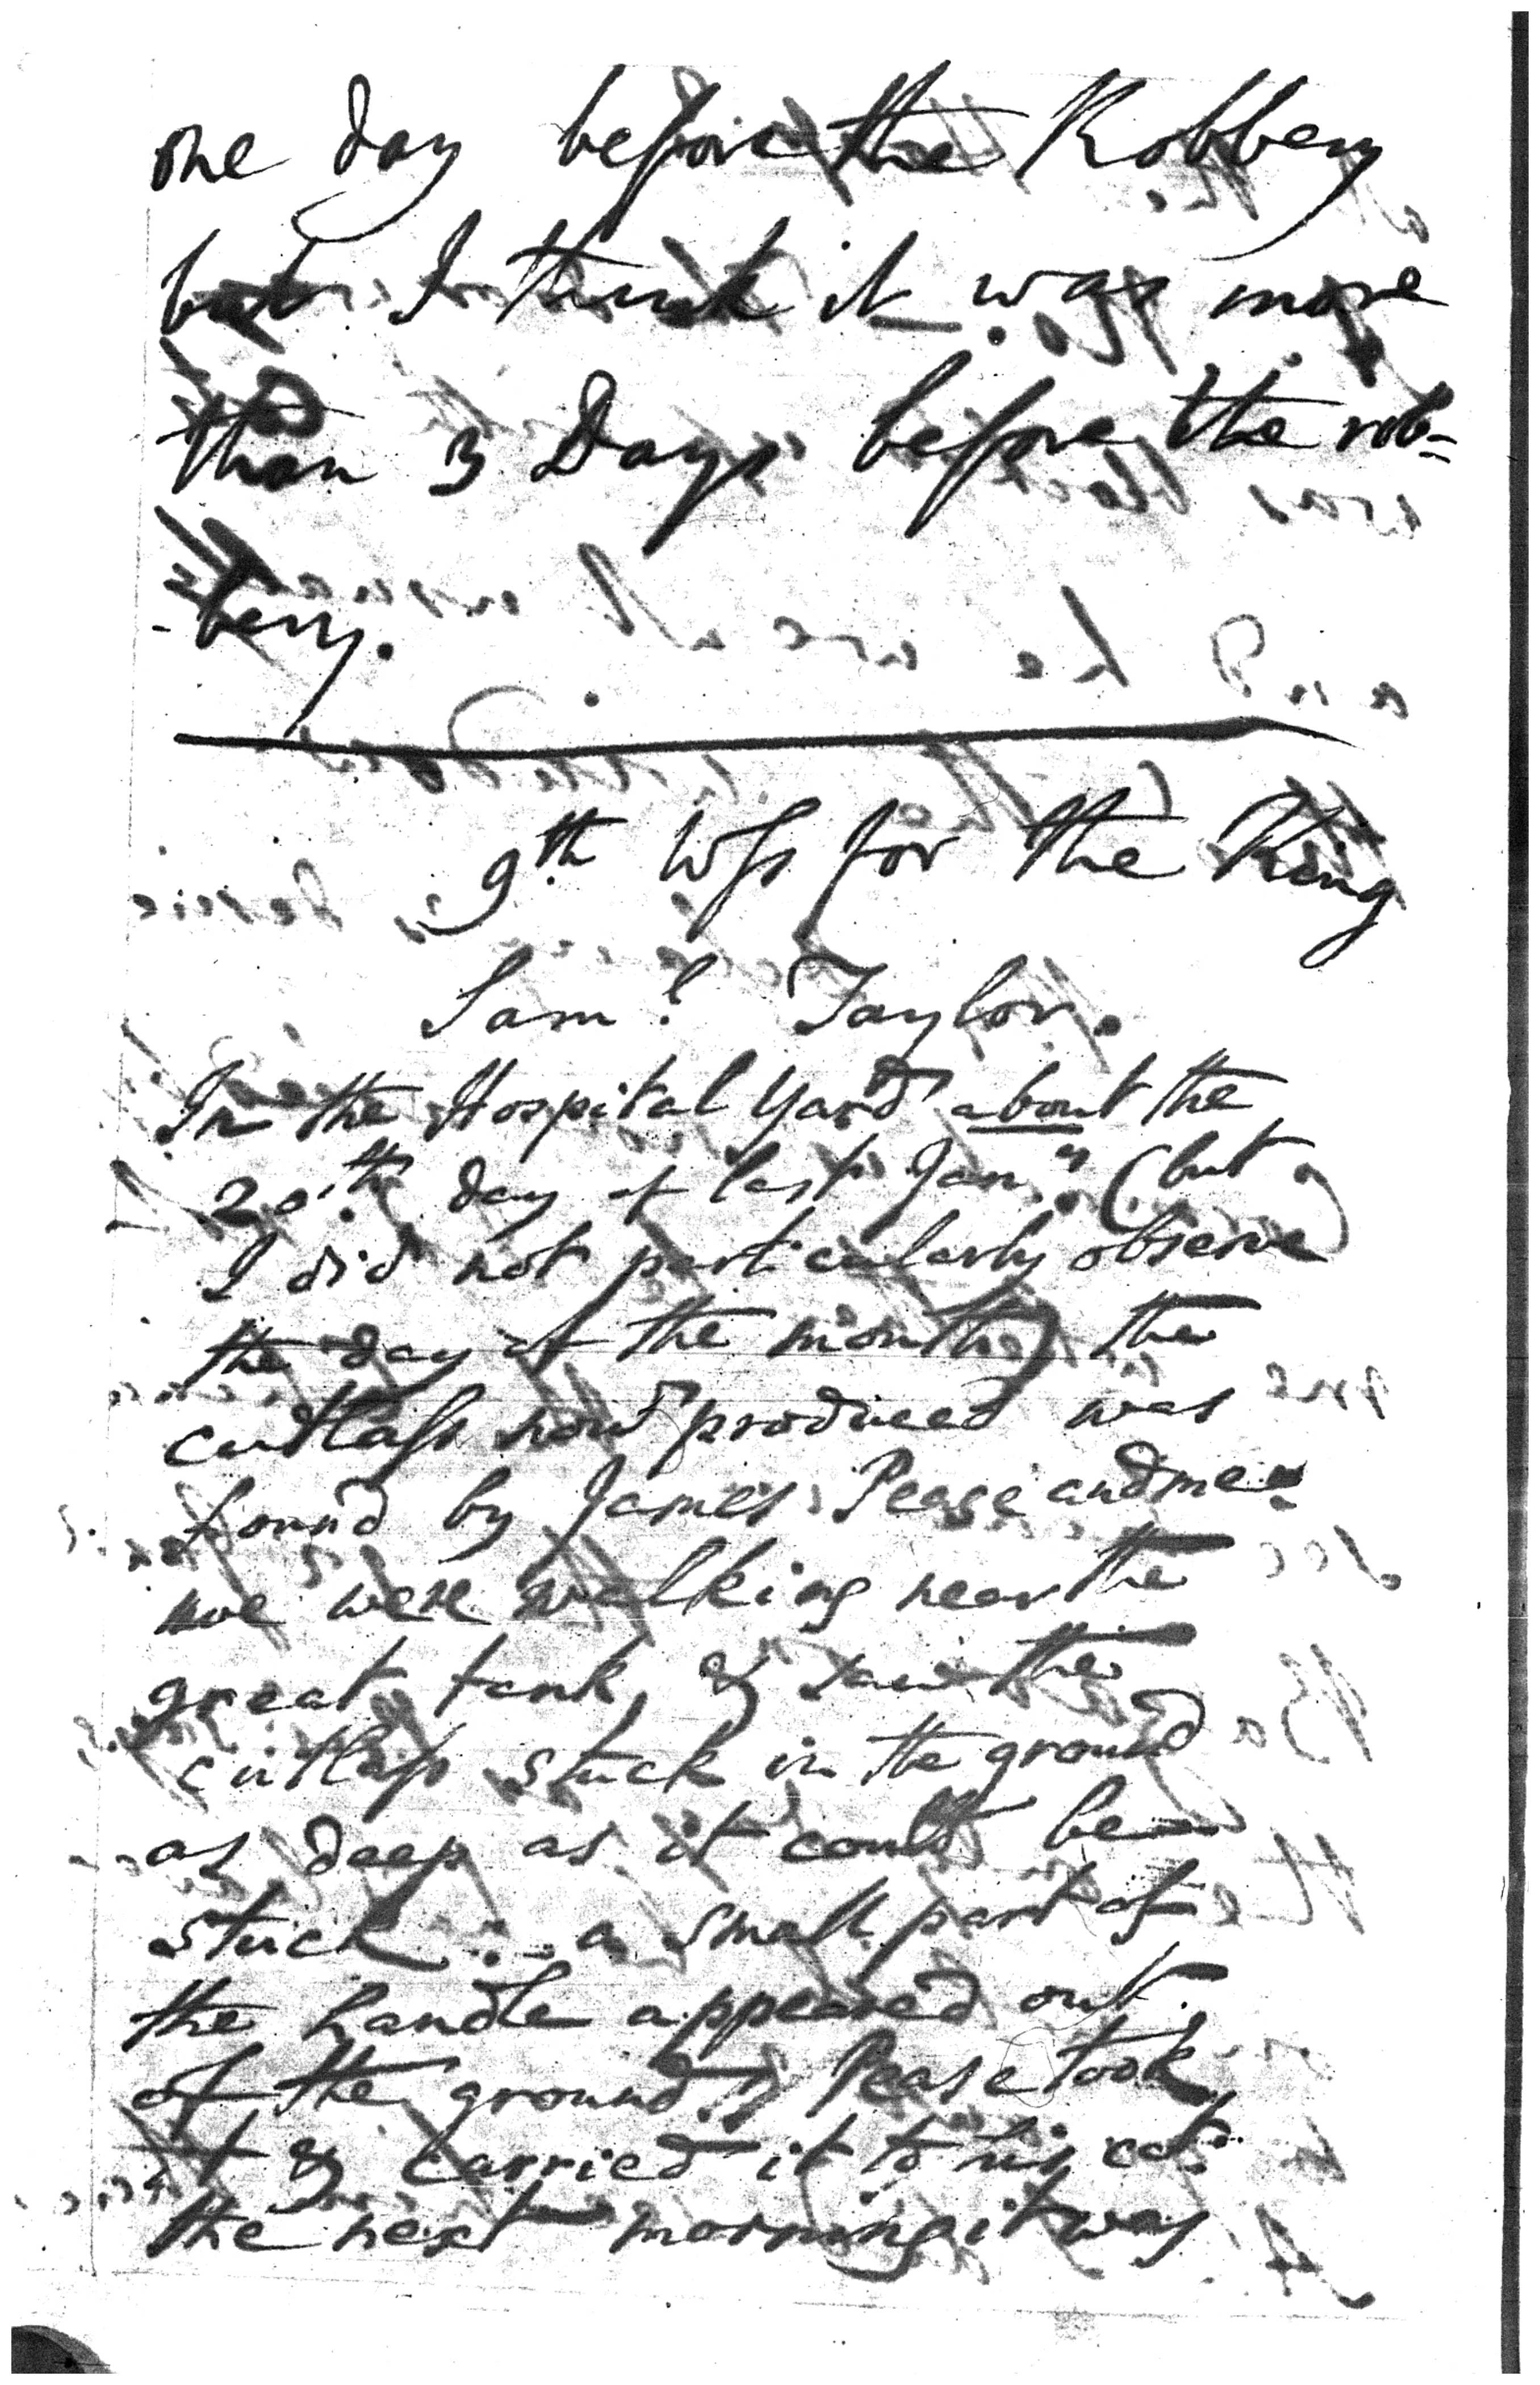 one day before the Robbery
but I think it was more
than 3 Days before the rob=
-bery.
9th Wss for the King
Saml Taylor.
In the Hospital Yard about the
20th day of last Jany (but
I did not particularly observe
the day of the month) the
cutlass now produced was
found by James Pease and me
we were walking near the
great tank, & saw the
cutlass stuck in the ground
as deep as it could be
stuck: a small part of
the handle appeared out
of the ground, Pease took
it & carried it to his cot:
the next morning it was